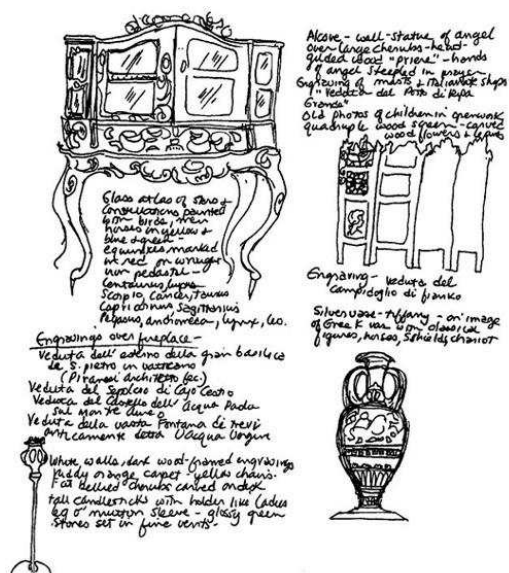 Glass atlas of stars &
constellations painted
with birds, men
horses in yellow &
blue & green -
equinoxes marked
in red on wrought
iron pedastal -
Centaurus, lupus
Scorpio, Cancer, Taurus
Capricornus Sagittarius
Pegasus, andromeda, lynx, leo.
Engravings over fireplace -
Veduta dell' esterno della gran basilica
de S. pietro in vaticano
(Piranesi architetto fec.)
Veduta del Sepolcro di Cajo Cestio
Veduta del Castello dell' acqua Paola
sul monte aureo
Veduta della vasta Fontana di trevi
anticamente detta l'acqua Vergine
White walls, dark wood-framed engravings
ruddy orange carpet - yellow chairs.
Fat bellied cherubs carved on desk
tall candlesticks with holder like ladies
leg o' mutton sleeve - glossy green
stones set in fine vents -
Alcove - wall-statue of angel
over large cherubs-head -
gilded wood "priere" - hands
of angel steepled in prayer
Engraving of masts & italianate ships
"Veduta del Porto di Ripa
Grande"
Old photos of children in openwork
quadruple wood screen -
wood flowers &
Engraving - veduta del
campidoglio di fianko
Silver vase - tiffany - on image
of Greek vase with classical
figures, horses, shields chariot